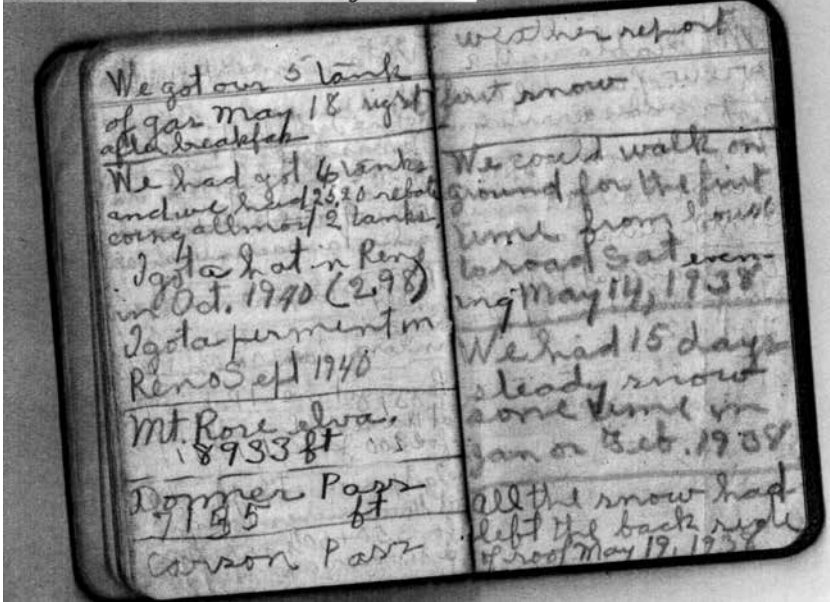 We got our 5 tank
of gas May 18 right
after breakfak
We had got 4 tanks
and we had 25,20 rebate
coing allmost 2 tanks.
I got a hat in Reno
in Oct. 1940 (2,98)
I got a perment in
Reno Sept 1940
Mt. Rose elva.
8933 ft
Donner Pass
7135 ft
Carson Pass
weather report
first snow
We could walk on
ground for the first
time from house
to road Sat even-
ing May 14, 1938
We had 15 days
steady snow
some time in
Jan or Feb. 1938
all the snow had
left the back side
of roof May 19, 1938